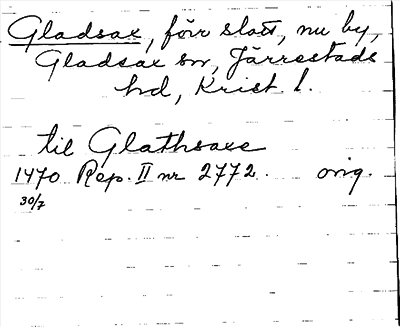 Gladsax, förr slott, nu by,
Gladsax sn, Järrestads
hd, Krist l.
til Glathsaxe
1470 Rep. II nr 2772. orig.
30/7